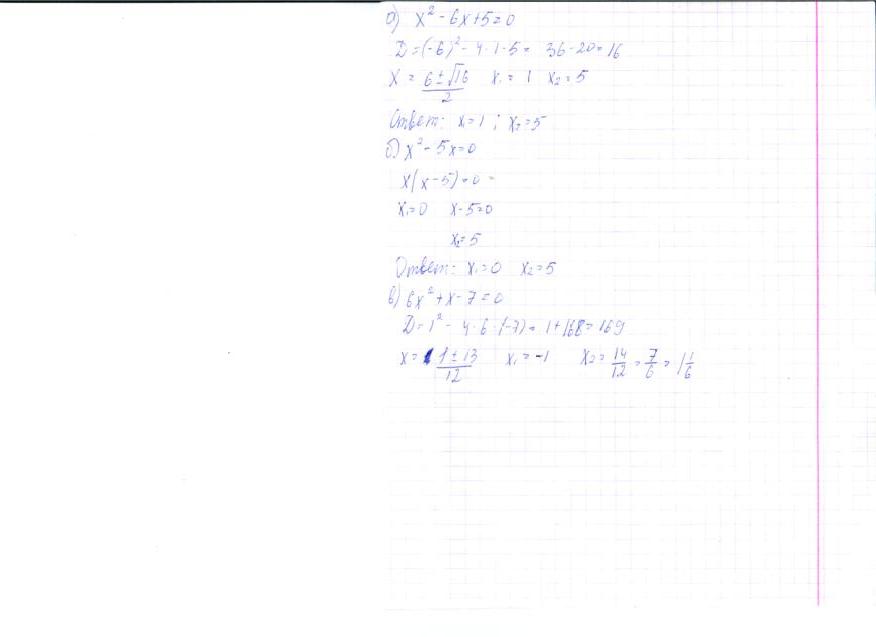 а) x² - 6x + 5 = 0
D = (-6)² - 4 · 1 · 5 = 36 - 20 = 16
x = (6 ± √16)/2 x₁ = 1 x₂ = 5
Ответ: x₁ = 1 ; x₂ = 5
б) x² - 5x = 0
x(x - 5) = 0
x₁ = 0 x - 5 = 0
x₂ = 5
Ответ: x₁ = 0 x₂ = 5
в) 6x² + x - 7 = 0
D = 1² - 4 · 6 · (-7) = 1 + 168 = 169
x = (1 ± 13)/12 x₁ = -1 x₂ = 14/12 = 7/6 = 1 1/6